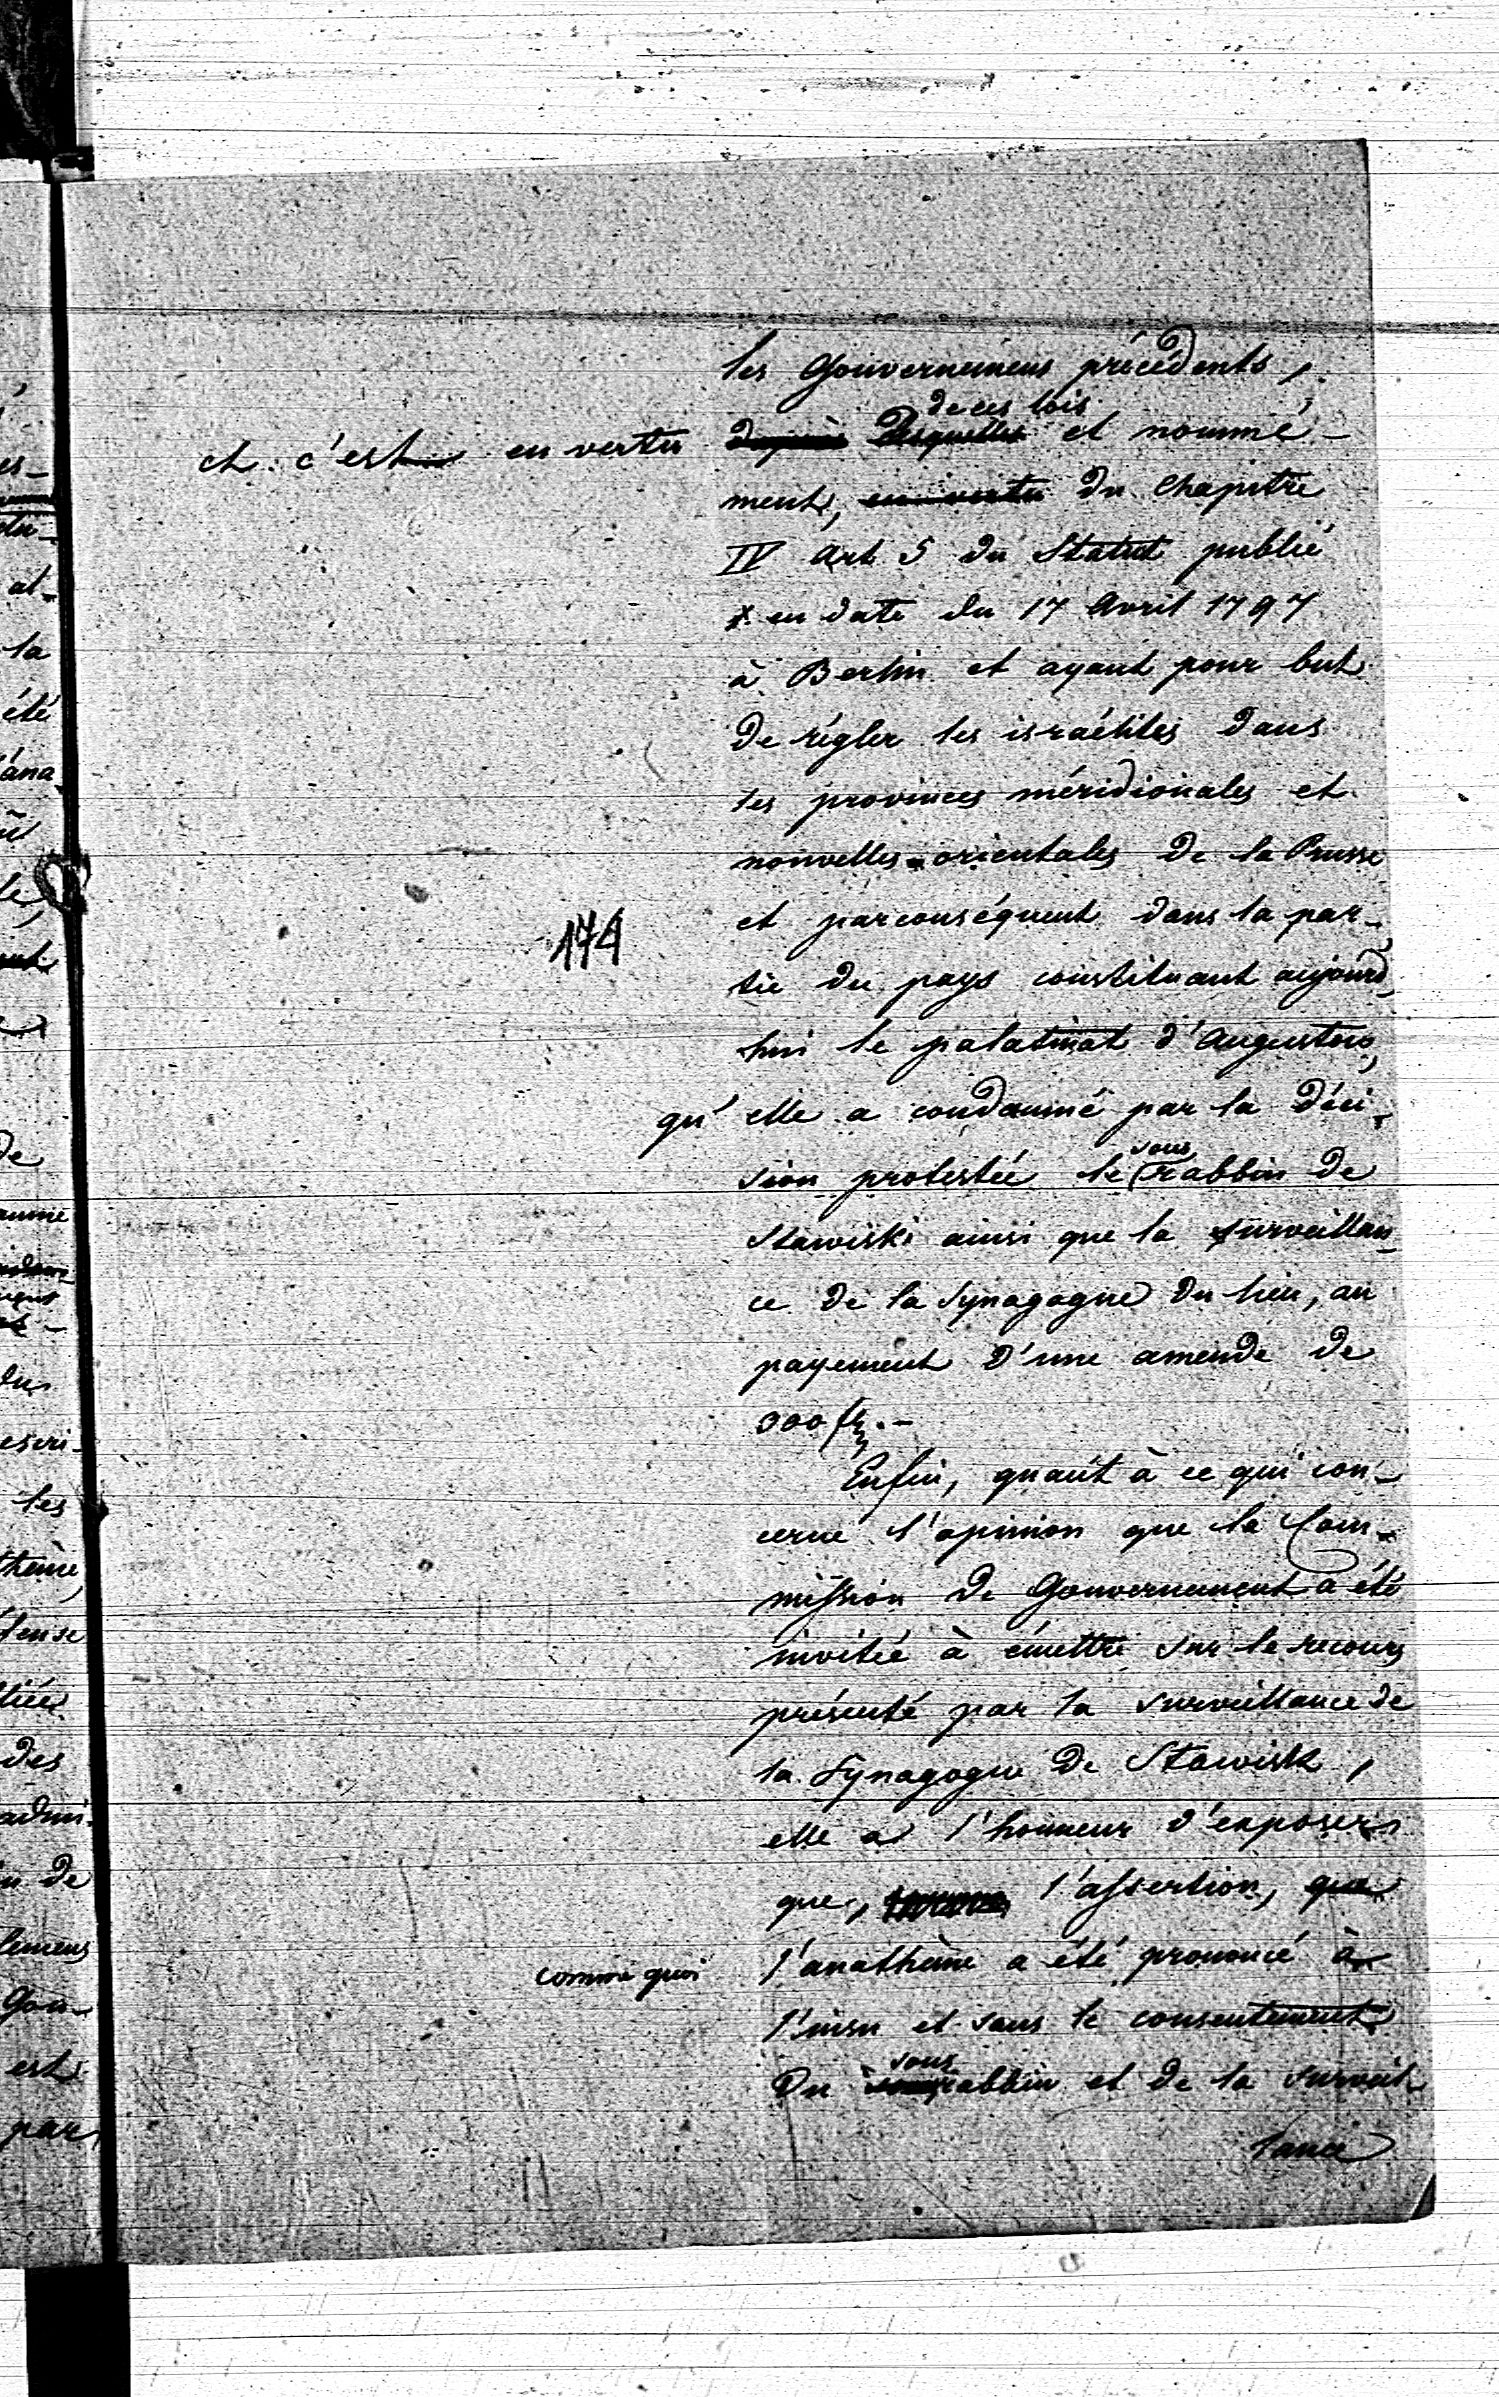 les Gouvernemens précédents,
et c'est en vertu de ces lois et nommé-
ment, en vertu du Chapitre
IV art 5 du Statut publié
en date du 17 Avril 1797
à Berlin et ayant pour but
de régler les israélites dans
les provinces méridionales et
nouvelles-orientales de la Prusse
et parconséquent dans la par-
174
tie du pays constituant aujourd'
hui le palatinat d'Augustow,
qu'elle a condamné par la déci-
sion protestée le sous rabbin de
Stawiski ainsi que la surveillan-
ce de la Synagogue du lieu, au
payement d'une amende de
300 fl. -
Enfin, quant à ce qui con-
cerne l'opinion que la Com-
mission de Gouvernement a été
invitée à émettre sur le recours
présenté par la surveillance de
la Synagogue de Stawisk,
elle a l'honneur d'exposer
que, l'assertion, que
comme quoi l'anathème a été prononcé à
l'insu et sans le consentement
du sous rabbin et de la surveil-
lance